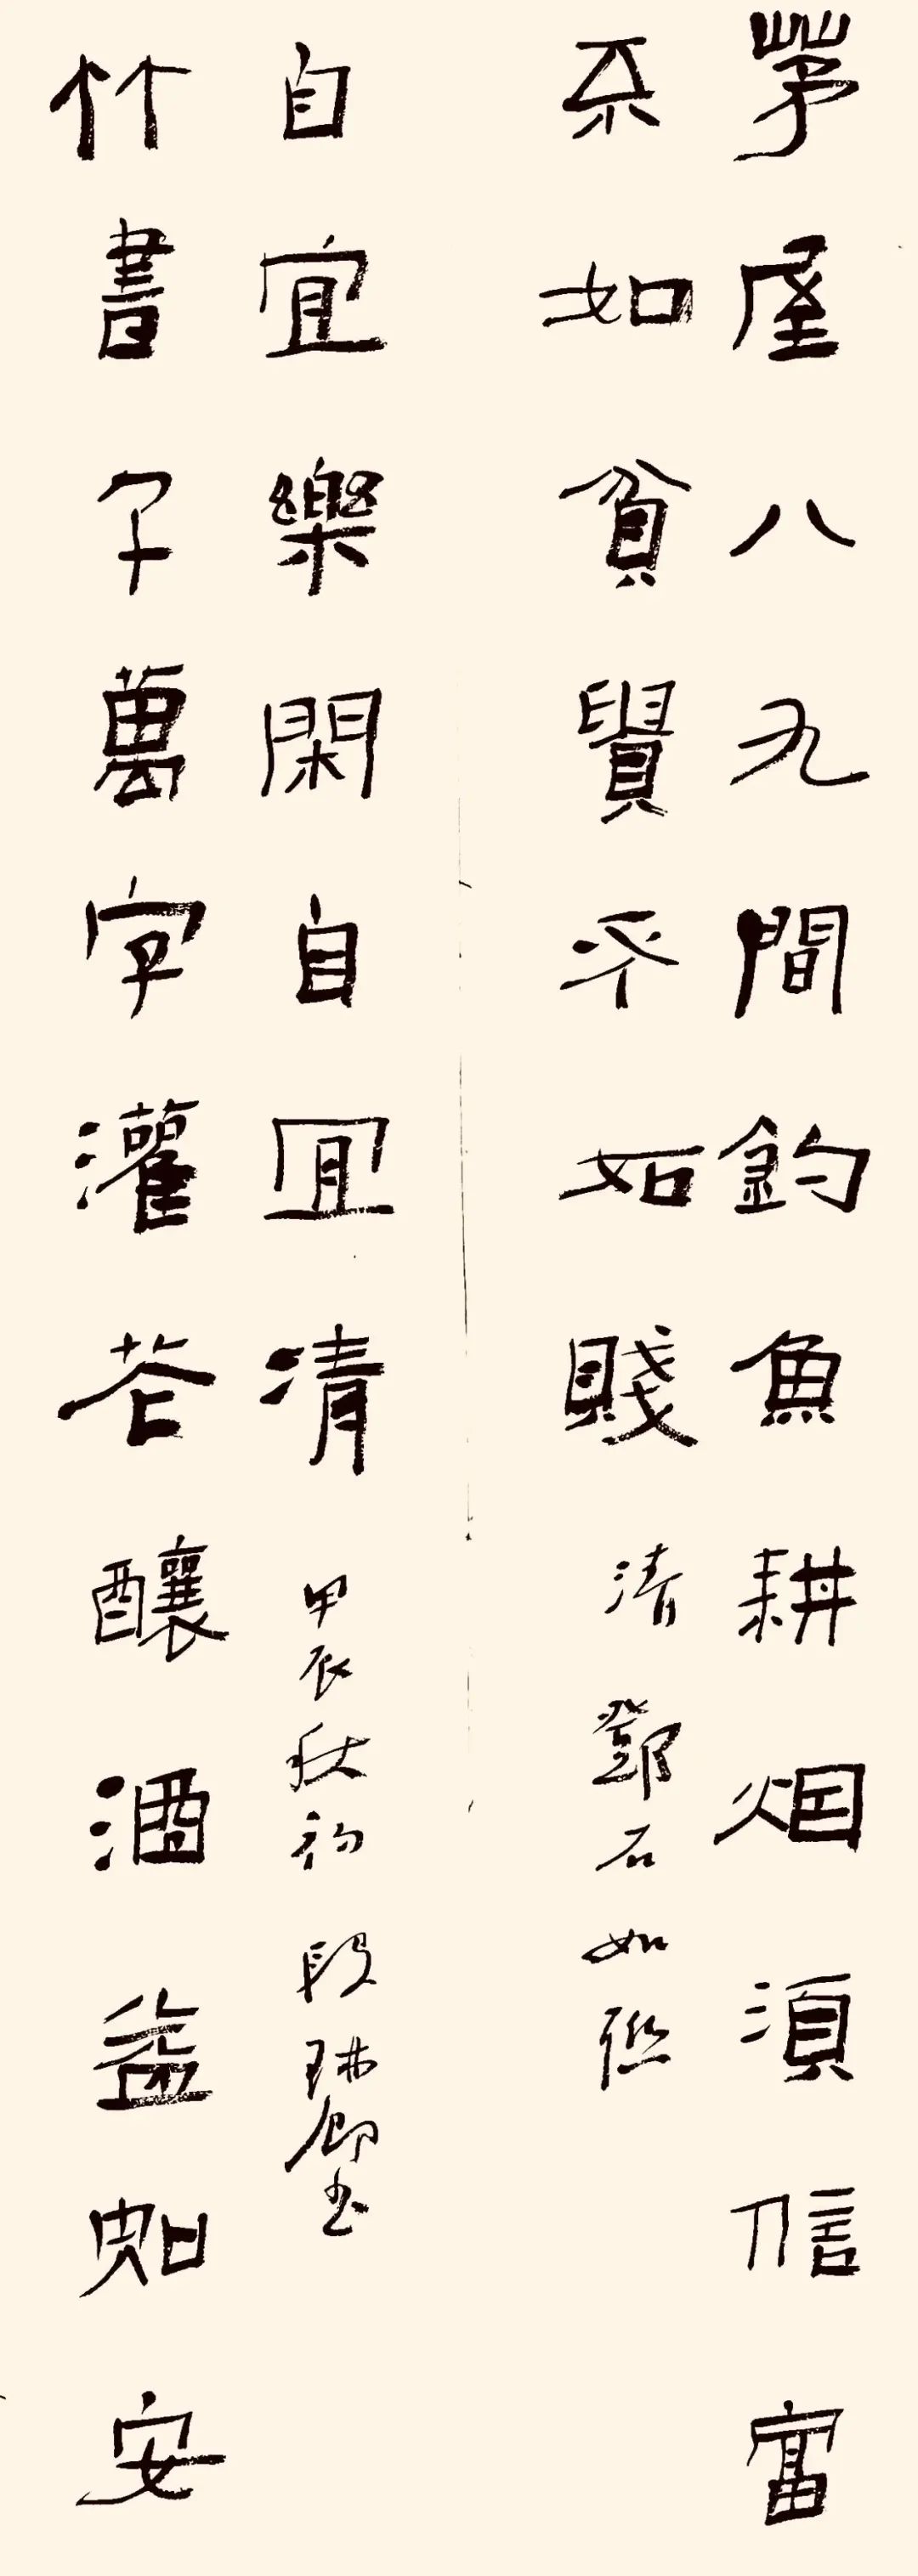 茅屋八九間釣魚耕烟須信富
不如貧貴不如賤 清 鄧石如聯
竹書千萬字灌花釀酒益知安
自宜樂閑自宜清 甲辰秋初 段琳卿书